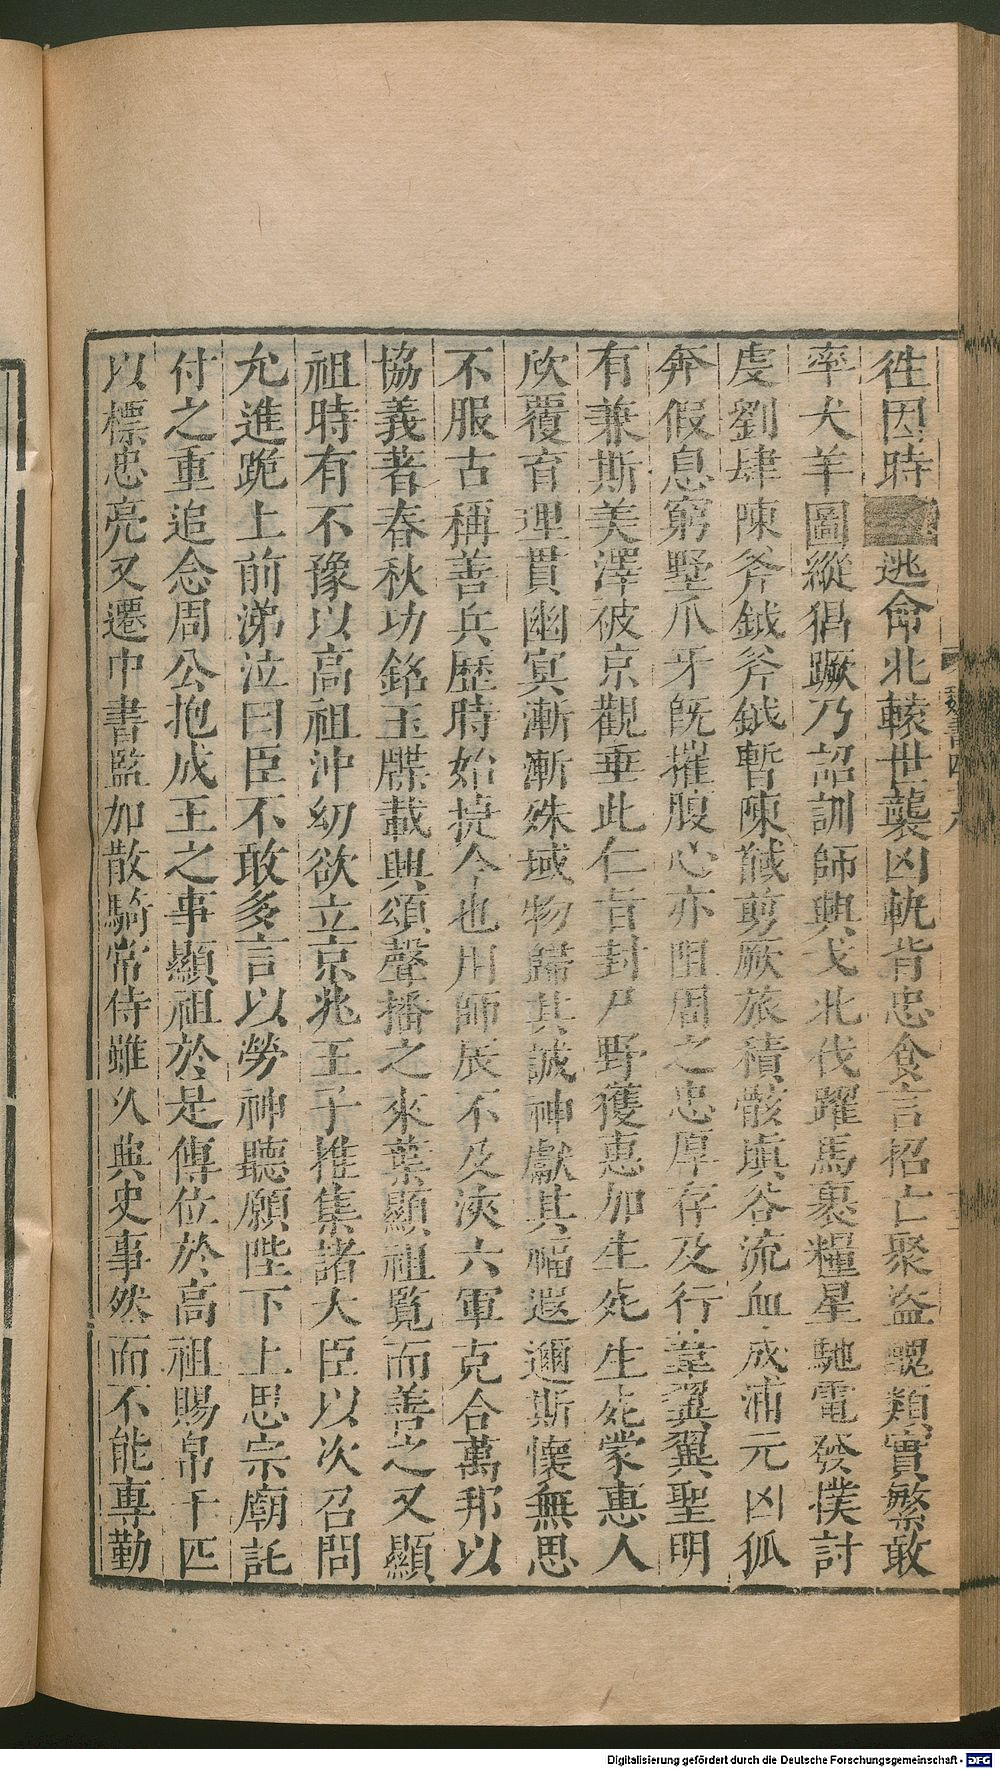 徃因時逃命北轅世襲凶軌背忠食言招亡聚盗醜類實繁敢
率犬羊圖縱猖蹶乃詔訓師興戈北伐躍馬裹糧星馳電發撲討
虔劉肆陳斧鉞斧鉞暫陳馘剪厥旅積骸塡谷流血成浦元凶狐
奔假息窮墅爪牙旣摧腹心亦阻周之忠厚存及行葦翼翼聖明
有兼斯美澤被京觀垂此仁旨封尸野獲惠加生死生死蒙惠人
欣覆育理貫幽冥漸漸殊域物歸其誠神獻其福遐邇斯懷無思
不服古稱善兵歷時始捷今也用師辰不及浹六軍克合萬邦以
協義著春秋功銘玉牒載興頌聲播之來葉顯祖覽而善之又顯
祖時有不豫以高祖沖幼欲立京兆王子推集諸大臣以次召問
允進跪上前涕泣曰臣不敢多言以勞神聽願陛下上思宗廟託
付之重追念周公抱成王之事顯祖於是傳位於高祖賜帛千匹
以標忠亮又遷中書監加散騎常侍雖久典史事然而不能專勤
魏書四十八
Digitalisierung gefördert durch die Deutsche Forschungsgemeinschaft - DFG